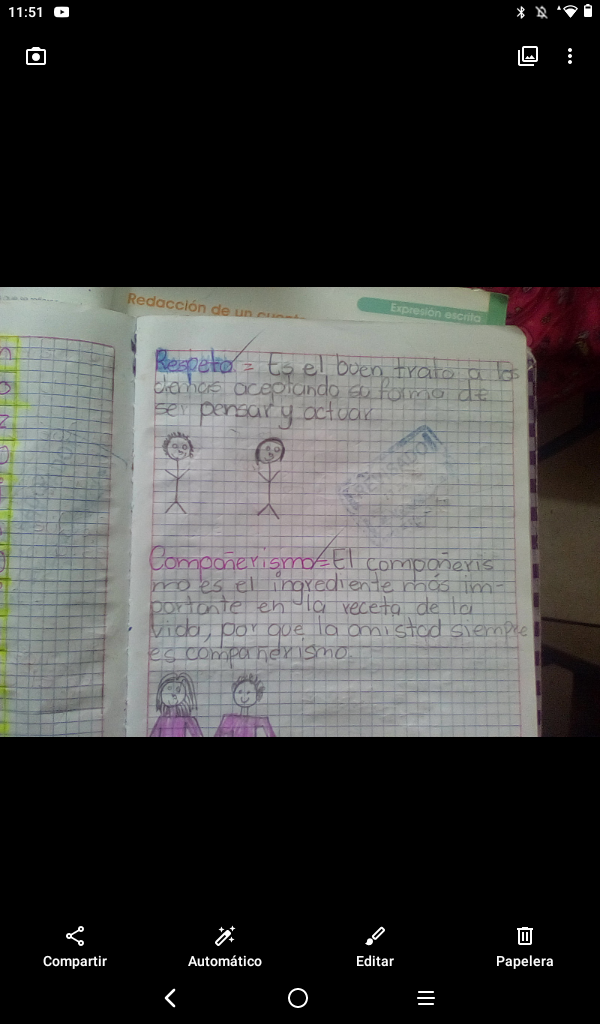 11:51
Redacción de un cuento
Expresión escrita
Respeto = Es el buen trato a los
demas aceptando su forma de
ser pensar y actuar
REVISADO
Compañerismo = El compañeris
mo es el ingrediente más im-
portante en la receta de la
vida, por que la amistad siempre
es compañerismo.
Compartir
Automático
Editar
Papelera